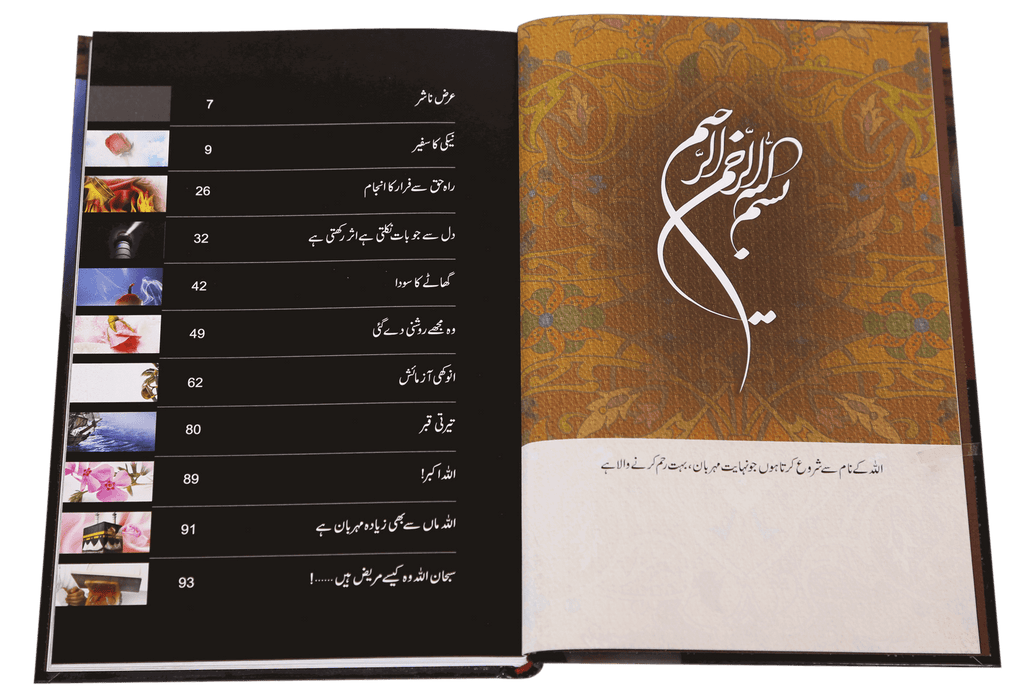 بسم الله الرحمن الرحيم
اللہ کے نام سے شروع کرتا ہوں جو نہایت مہربان، بہت رحم کرنے والا ہے
عرض ناشر 7
نیکی کا سفیر 9
راہ حق سے فرار کا انجام 26
دل سے جو بات نکلتی ہے اثر رکھتی ہے 32
گھاٹے کا سودا 42
وہ مجھے روشنی دے گئی 49
انوکھی آزمائش 62
تیرتی قبر 80
اللہ اکبر! 89
اللہ ماں سے بھی زیادہ مہربان ہے 91
سبحان اللہ وہ کیسے مریض ہیں ......! 93